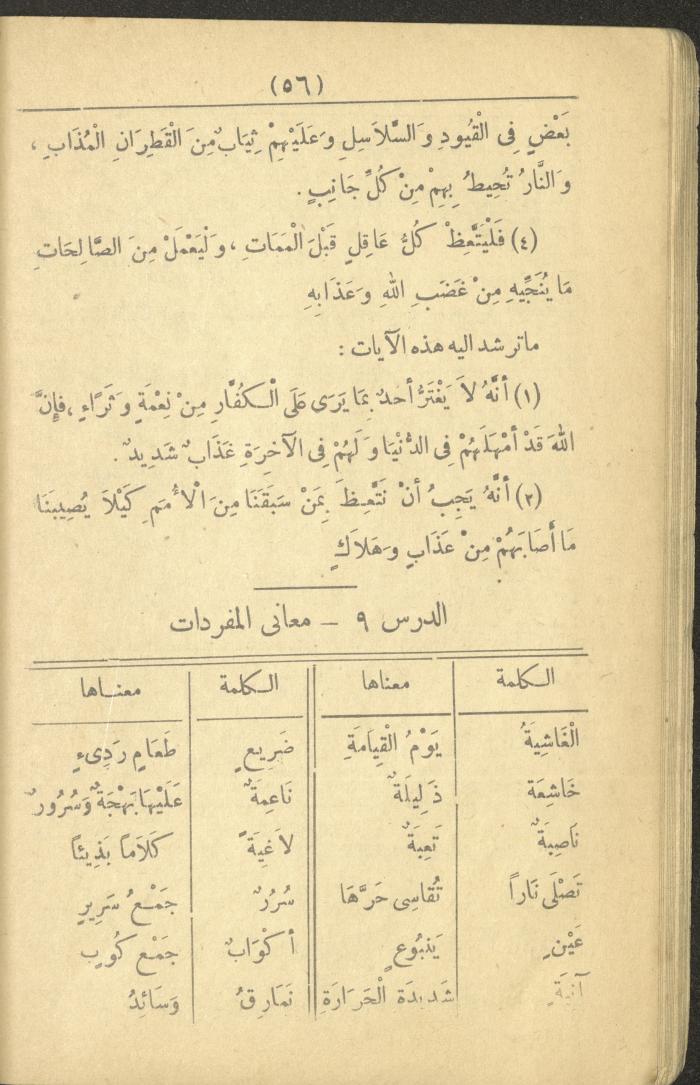 (٥٦)
بَعْضٍ فِى الْقُيُودِ وَالسَّلاَسِلِ وَعَلَيْهِمْ ثِيَابٌ مِنَ الْقَطِرَانِ الْمُذَابِ ،
وَالنَّارُ تُحِيطُ بِهِمْ مِنْ كُلِّ جَانِبٍ .
(٤) فَلْيَتَّعِظْ كُلُّ عَاقِلٍ قَبْلَ الْمَمَاتِ ، وَلْيَعْمَلْ مِنَ الصَّالِحَاتِ
مَا يُنَجِّيهِ مِنْ غَضَبِ اللهِ وَعَذَابِهِ
ماترشد اليه هذه الآيات :
(١) أَنَّهُ لاَ يَغْتَرُّ أحدٌ بِمَا يَرَى عَلَى الْـكُفَّارِ مِنْ نِعْمَةٍ وَثَرَاءٍ ، فإِنَّ
اللهَ قَدْ أَمْهَلَهُمْ فِى الدُّنْيَا وَلَهُمْ فِى الآخِرَةِ عَذَابٌ شَدِيدٌ .
(٢) أَنَّهُ يَجِبُ أَنْ نَتَّعِظَ بِمَنْ سَبَقَنَا مِنَ الْأُمَمِ كَيْلاَ يُصِيبَنَا
مَا أَصَابَهُمْ مِنْ عَذَابٍ وَهَلاَكٍ
الدرس ٩ ـ معانى المفردات
الـكلمة معناها الـكلمة معنـاها
الْغَاشِيَةُ يَوْمُ الْقِيَامَةِ ضَرِيعٍ طَعَامٍ رَدِىءٍ
خَاشِعَة ذَلِيلَةٌ نَاعِمَةٌ عَلَيْهَا بَهْجَةٌ وَسُرُورٌ
نَاصِبَةٌ تَعِبَةٌ لاَغِيَةً كَلاَماً بَذِيئاً
تَصْلَى نَاراً تُقَاسِى حَرَّهَا سُرُرٌ جَمْعُ سَرِيرٍ
عَيْنٍ يَنْبُوعٍ أَكْوَابٌ جَمْع كُوبٍ
آنِيَةٍ شَدِيدَة الْحَرَارَةِ نَمَارِقُ وَسَائِدُ